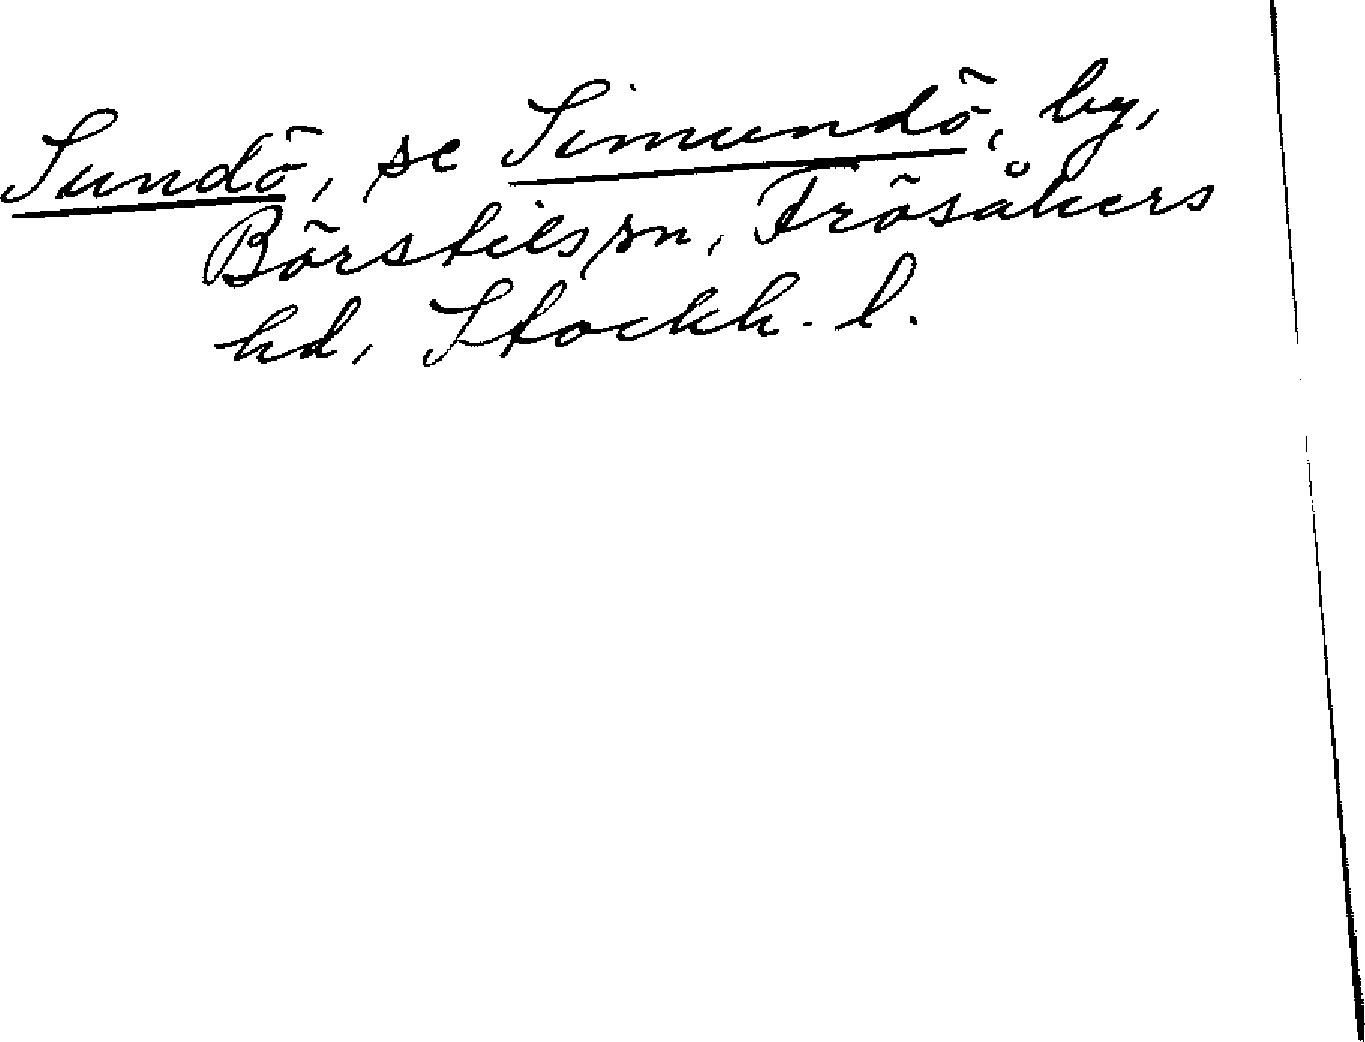 Sundö, se Simundö, by,
Börstils sn, Frösåkers
hd, Stockh. l.